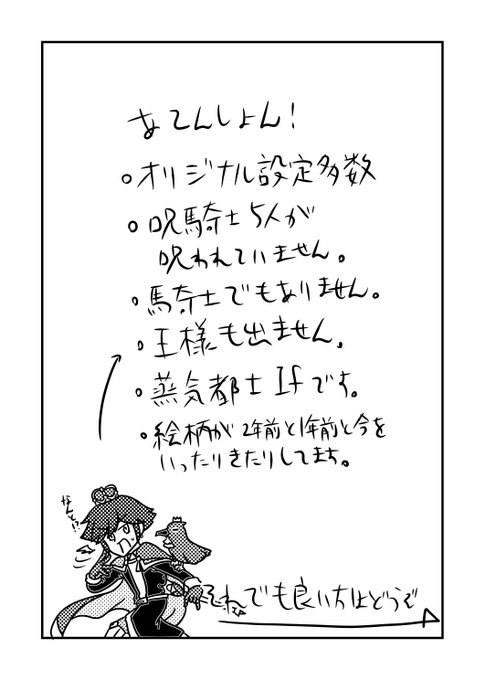 あてんしょん!
。オリジナル設定多数
。呪騎士5人が
呪われていません。
・馬奇士でもありません。
・王様も出ません。
・蒸気都士Ifです。
・絵柄が2年前と1年前と今を
いったりきたりしてます。
なんと!?
それでも良い方はどうぞ